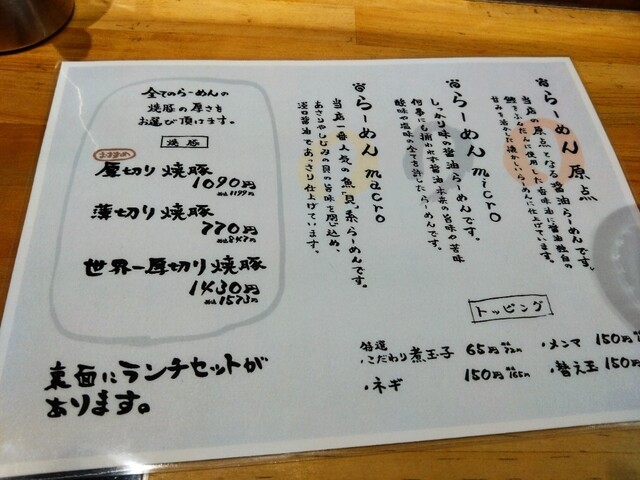 宮らーめん 原点
当店の原点となる醤油らーめんです。
鰹をふんだんに使用した旨味油に醤油独自の
甘みを活かした懐かしいらーめんに仕上げています。
宮らーめん micro
しっかり味の醤油らーめんです。
何事にも捕われず醤油本来の旨味や苦味
酸味や塩味の全てを許したらーめんです。
宮らーめん macro
当店一番人気の魚、貝系らーめんです。
あさりやしじみの貝の旨味を閉じ込め、
淡口醤油であっさり仕上げています。
全てのらーめんの
焼豚の厚さも
お選び頂けます。
焼豚
おすすめ
厚切り焼豚
1090円
税込1199円
薄切り焼豚
770円
税込847円
世界一厚切り焼豚
1430円
税込1573円
裏面にランチセットが
あります。
トッピング
特選
・こだわり煮玉子 65円 税込72円
・ネギ 150円 税込165円
・メンマ 150円
・替え玉 150円